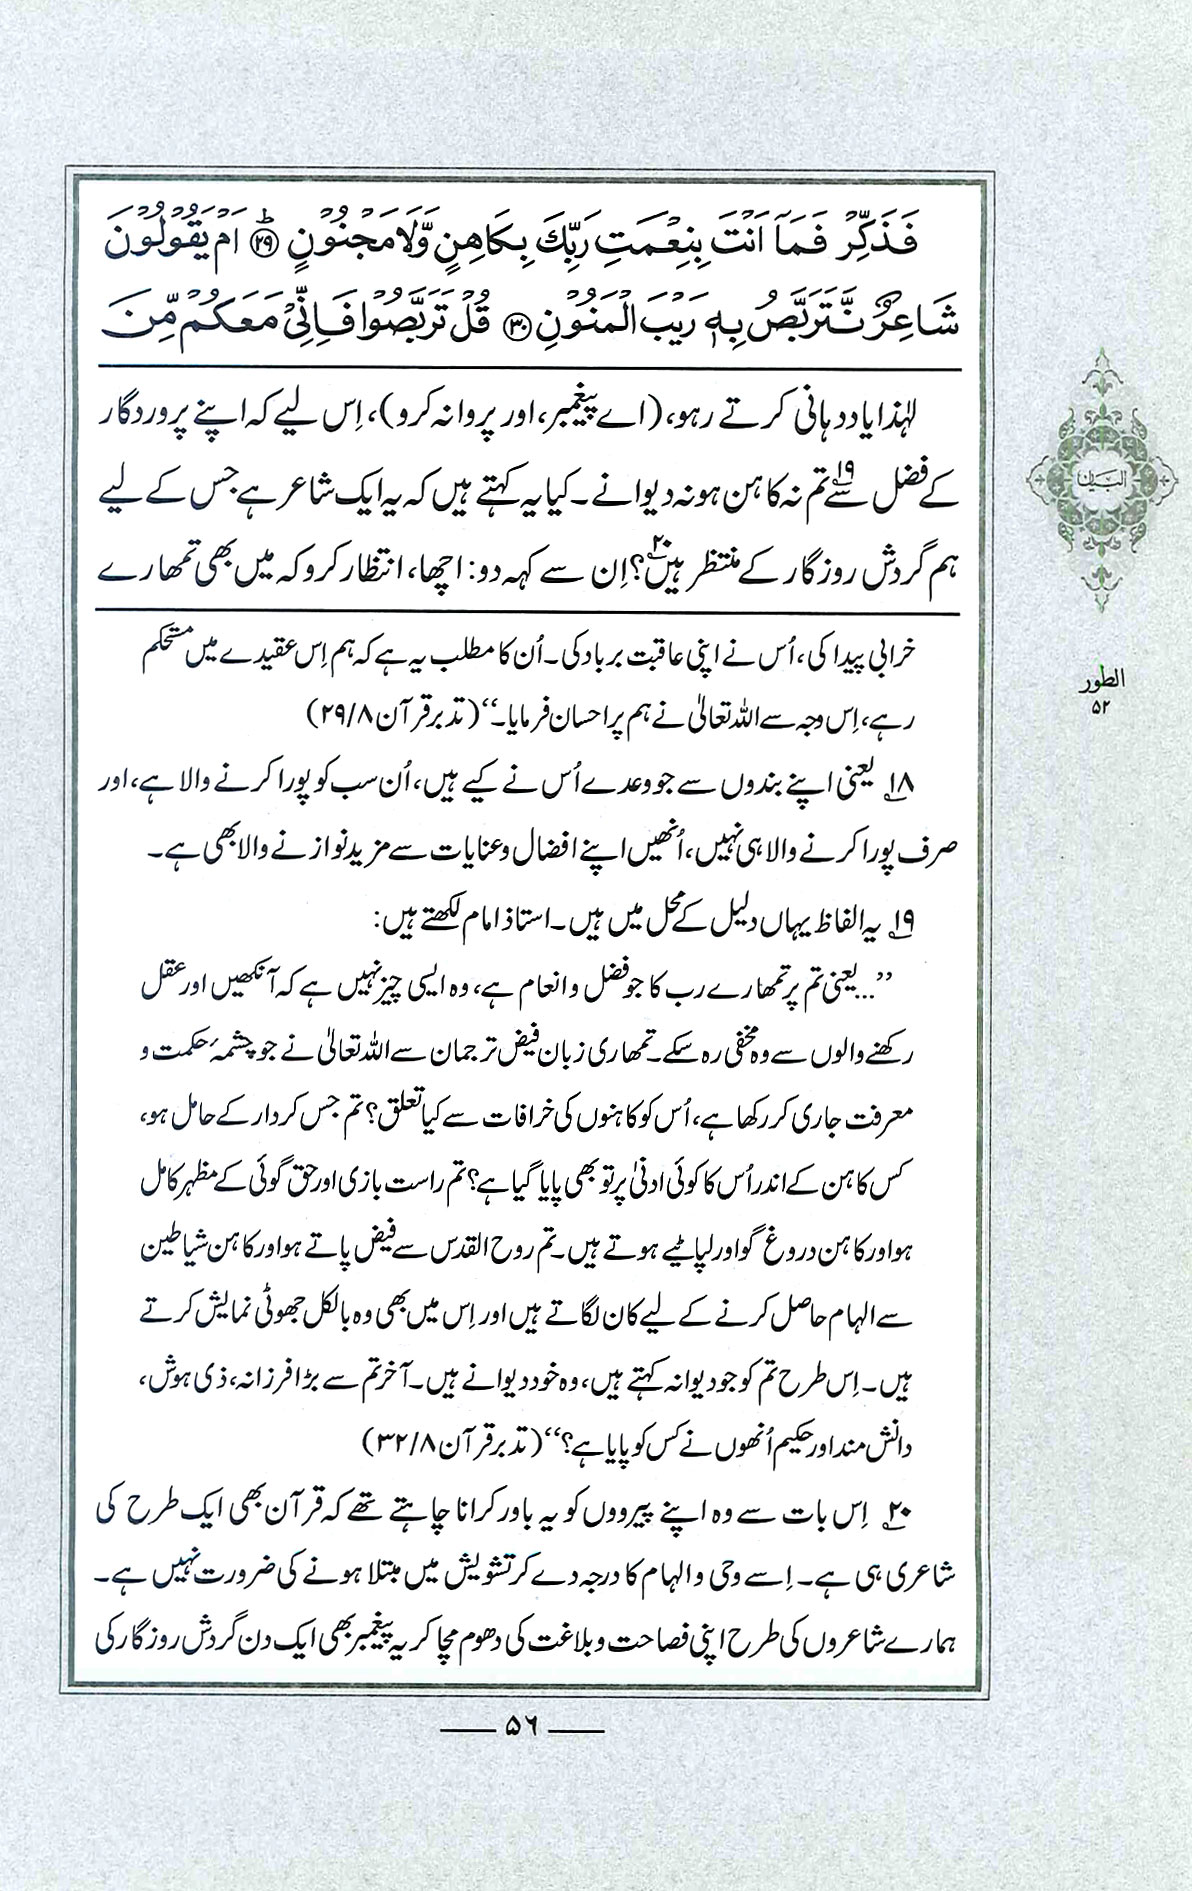 فَذَكِّرْ فَمَآ اَنْتَ بِنِعْمَتِ رَبِّكَ بِكَاهِنٍ وَّلَا مَجْنُوْنٍ ﴿۲۹﴾ؕ اَمْ يَقُوْلُوْنَ
شَاعِرٌ نَّتَرَبَّصُ بِهٖ رَيْبَ الْمَنُوْنِ ﴿۳۰﴾ قُلْ تَرَبَّصُوْا فَاِنِّيْ مَعَكُمْ مِّنَ
لہٰذا یاددہانی کرتے رہو، (اے پیغمبر، اور پروا نہ کرو)، اِس لیے کہ اپنے پروردگار
کے فضل سے۱۹ تم نہ کاہن ہو نہ دیوانے۔ کیا یہ کہتے ہیں کہ یہ ایک شاعر ہے جس کے لیے
ہم گردش روزگار کے منتظر ہیں۲۰؟ اِن سے کہہ دو: اچھا، انتظار کرو کہ میں بھی تمھارے
خرابی پیدا کی، اُس نے اپنی عاقبت برباد کی۔ اُن کا مطلب یہ ہے کہ ہم اِس عقیدے میں مستحکم
رہے، اِس وجہ سے اللہ تعالیٰ نے ہم پر احسان فرمایا۔‘‘ (تدبر قرآن ۸/ ۲۹)
۱۸ یعنی اپنے بندوں سے جو وعدے اُس نے کیے ہیں، اُن سب کو پورا کرنے والا ہے، اور
صرف پورا کرنے والا ہی نہیں، اُنھیں اپنے افضال و عنایات سے مزید نوازنے والا بھی ہے۔
۱۹ یہ الفاظ یہاں دلیل کے محل میں ہیں۔ استاذ امام لکھتے ہیں:
’’...یعنی تم پر تمھارے رب کا جو فضل و انعام ہے، وہ ایسی چیز نہیں ہے کہ آنکھیں اور عقل
رکھنے والوں سے وہ مخفی رہ سکے۔ تمھاری زبان فیض ترجمان سے اللہ تعالیٰ نے جو چشمۂ حکمت و
معرفت جاری کر رکھا ہے، اُس کو کاہنوں کی خرافات سے کیا تعلق؟ تم جس کردار کے حامل ہو،
کس کاہن کے اندر اُس کا کوئی ادنیٰ پرتو بھی پایا گیا ہے؟ تم راست بازی اور حق گوئی کے مظہر کامل
ہو اور کاہن دروغ گو اور لپاٹیے ہوتے ہیں۔ تم روح القدس سے فیض پاتے ہو اور کاہن شیاطین
سے الہام حاصل کرنے کے لیے کان لگاتے ہیں اور اِس میں بھی وہ بالکل جھوٹی نمایش کرتے
ہیں۔ اِس طرح تم کو جو دیوانہ کہتے ہیں، وہ خود دیوانے ہیں۔ آخر تم سے بڑا فرزانہ، ذی ہوش،
دانش مند اور حکیم اُنھوں نے کس کو پایا ہے؟‘‘ (تدبر قرآن ۸/ ۳۲)
۲۰ اِس بات سے وہ اپنے پیرووں کو یہ باور کرانا چاہتے تھے کہ قرآن بھی ایک طرح کی
شاعری ہی ہے۔ اِسے وحی و الہام کا درجہ دے کر تشویش میں مبتلا ہونے کی ضرورت نہیں ہے۔
ہمارے شاعروں کی طرح اپنی فصاحت و بلاغت کی دھوم مچا کر یہ پیغمبر بھی ایک دن گردش روزگار کی
البیان
الطور
۵۲
۵۶